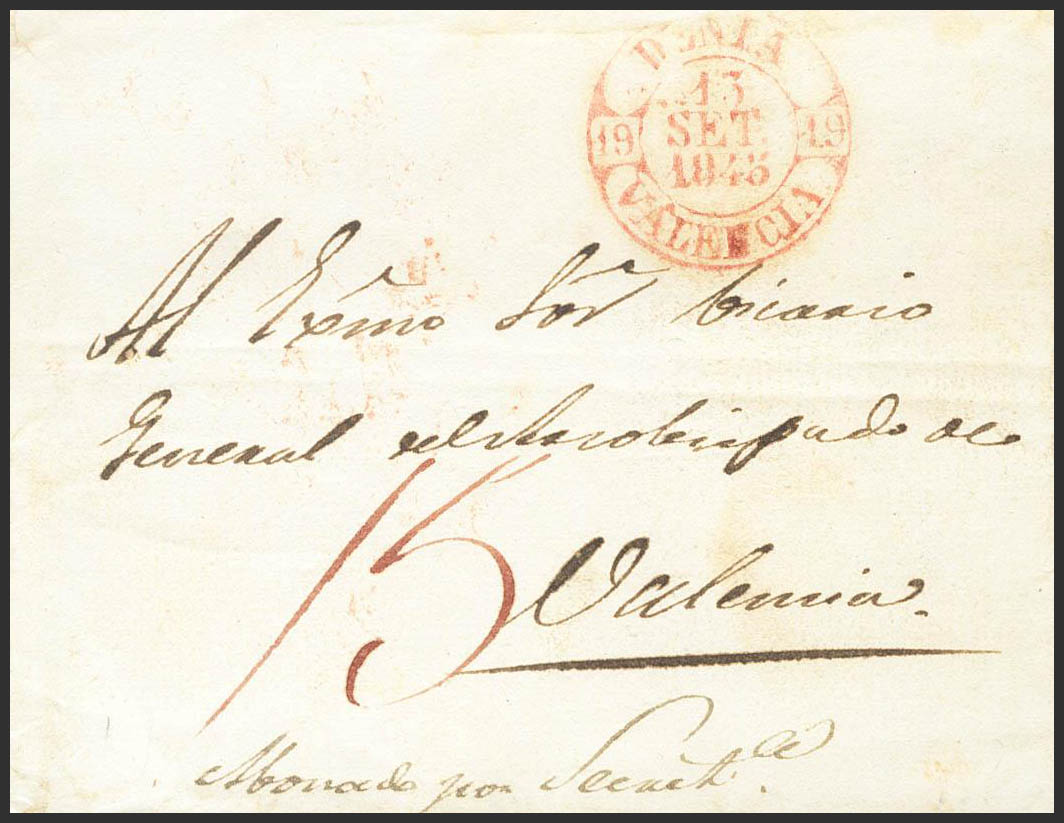 DENIA
13
SET.
1845
19 19
VALENCIA
Al Exmo Sor Vicario
General del Arzobispado de
15
Valencia.
Abonado por Secret.